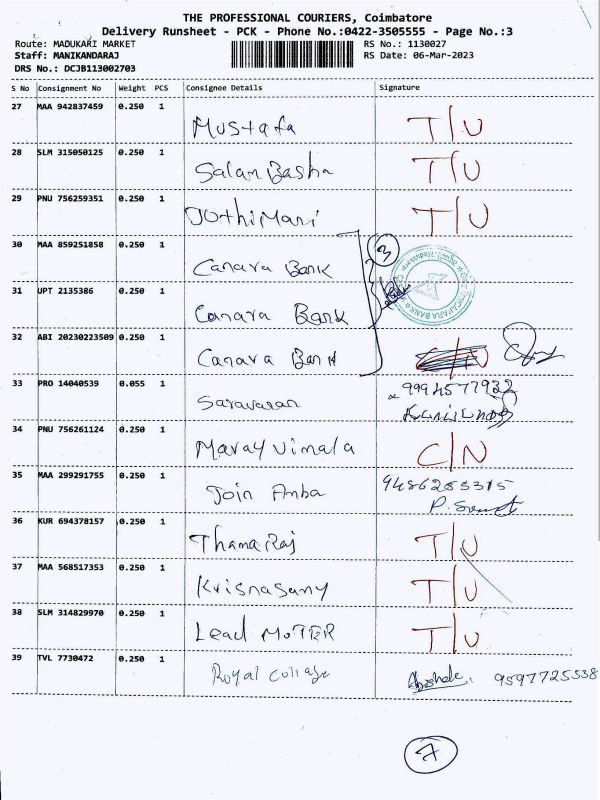 THE PROFESSIONAL COURIERS, Coimbatore
Delivery Runsheet - PCK - Phone No.:0422-3505555 - Page No.:3
Route: MADUKARI MARKET RS No.: 1130027
Staff: MANIKANDARAJ RS Date: 06-Mar-2023
DRS No.: DCJB113002703
S No Consignment No Weight PCS Consignee Details Signature
27 MAA 942837459 0.250 1 Mustafa T/U
28 SLM 315050125 0.250 1 Salam Basha T/U
29 PNU 756259351 0.250 1 JothiMani T/U
30 MAA 859251858 0.250 1 Canara Bank 3
31 UPT 2135386 0.250 1 Canara Bank
32 ABI 20230223509 0.250 1 Canara Bank
33 PRO 14040539 0.055 1 Saravanan 9994577932
34 PNU 756261124 0.250 1 Maray Vimala C/N
35 MAA 299291755 0.250 1 Join Anba 9486285315
36 KUR 694378157 0.250 1 ThamaRaj T/U
37 MAA 568517353 0.250 1 Krisnasamy T/U
38 SLM 314829970 0.250 1 Lead MOTTER T/U
39 TVL 7730472 0.250 1 Royal College 9597725538
7